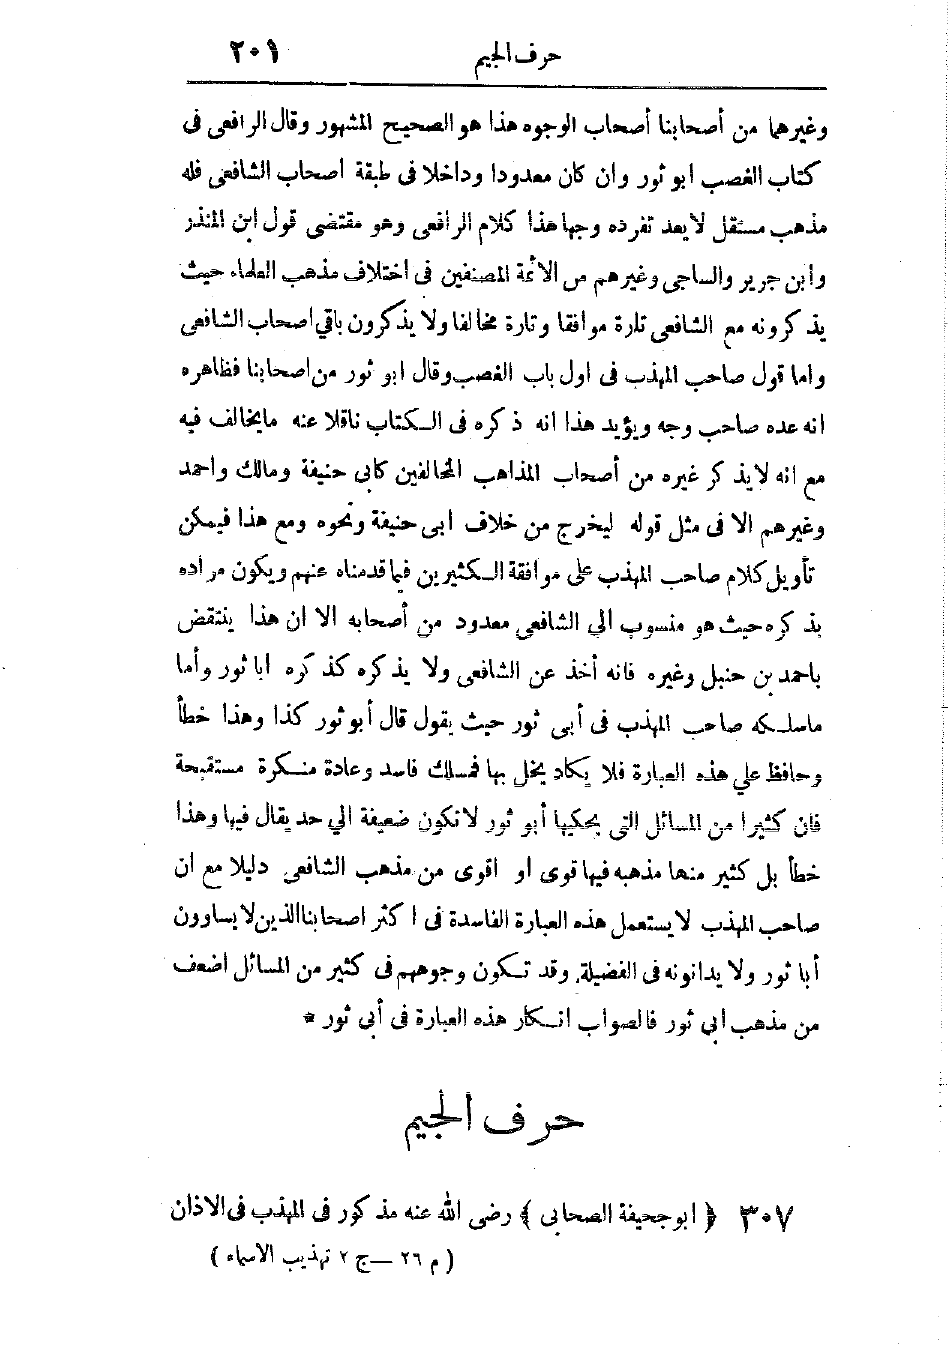 حرف الجيم ٢٠١
وغيرهما من أصحابنا أصحاب الوجوه هذا هو الصحيح المشهور وقال الرافعى فى
كتاب الغصب ابو ثور وان كان معدودا وداخلا فى طبقة أصحاب الشافعى فله
مذهب مستقل لا يعد تفرده وجها هذا كلام الرافعى وهو مقتضى قول ابن المنذر
وابن جرير والساجى وغيرهم من الأئمة المصنفين فى اختلاف مذهب العلماء حيث
يذكرونه مع الشافعى تارة موافقا وتارة مخالفا ولا يذكرون باقي اصحاب الشافعى
واما قول صاحب المهذب فى اول باب الغصب وقال ابو ثور من اصحابنا فظاهره
انه عده صاحب وجه ويؤيد هذا انه ذكره فى الكتاب ناقلا عنه ما يخالف فيه
مع انه لا يذكر غيره من أصحاب المذاهب المخالفين كابى حنيفة ومالك واحمد
وغيرهم الا فى مثل قوله ليخرج من خلاف ابى حنيفة ونحوه ومع هذا فيمكن
تأويل كلام صاحب المهذب علي موافقة الكثيرين فيما قدمناه عنهم ويكون مراده
بذكره حيث هو منسوب الي الشافعى معدود من أصحابه الا ان هذا ينتقض
باحمد بن حنبل وغيره فانه أخذ عن الشافعى ولا يذكره كذكره ابا ثور وأما
ما سلكه صاحب المهذب فى أبى ثور حيث يقول قال أبو ثور كذا وهذا خطأ
وحافظ علي هذه العبارة فلا يكاد يخل بها فمسلك فاسد وعادة منكرة مستقبحة
فان كثيرا من المسائل التى يحكيها أبو ثور لا تكون ضعيفة الي حد يقال فيها وهذا
خطأ بل كثير منها مذهبه فيها قوى او اقوى من مذهب الشافعى دليلا مع ان
صاحب المهذب لا يستعمل هذه العبارة الفاسدة فى اكثر اصحابنا الذين لا يساوون
أبا ثور ولا يدانونه فى الفضيلة وقد تكون وجوههم فى كثير من المسائل اضعف
من مذهب ابي ثور فالصواب انكار هذه العبارة فى أبي ثور *
حرف الجيم
٣٠٧ ﴿ ابو جحيفة الصحابى ﴾ رضى الله عنه مذكور فى المهذب فى الاذان
( م ٢٦ — ج ٢ تهذيب الاسماء )